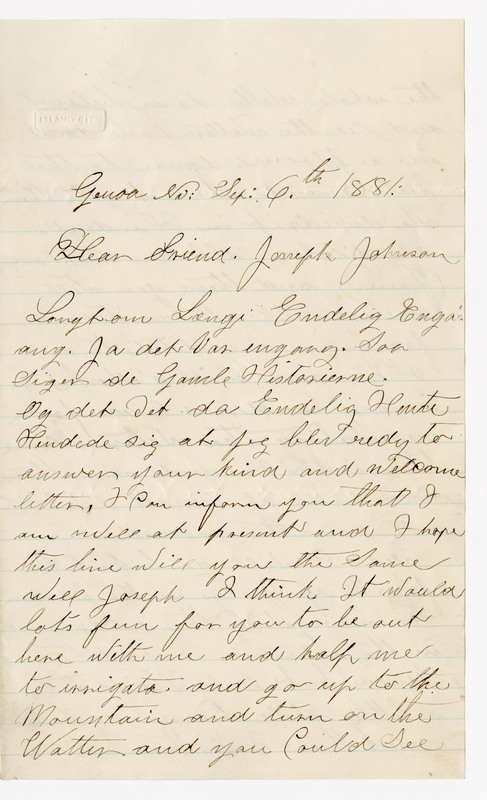 ISLAND CITY
Genoa Nv: Sep: 6.th 1881:
Dear Friend. Joseph Johnson
Longtom Længi Endelig Engá-
ang. Ja det Var engang. Saa
Siger de Gamle Historierne.
Og det det da Endelig Hente
Hendede sig at jeg blev redy to
answer your kind and Welcome
letter, I Can inform you that I
am well at present and I hope
this line Will you the Same
Well Joseph I think It Would
lots fun for you to be out
here With me and half me
to irrigate. and go up to the
Mountain and turn on the
Watter and you Could See